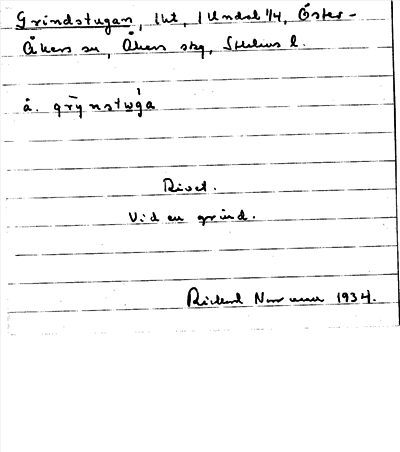 Grindstugan, lht, 1 Undal 1/4, Öster-
Åkers sn, Åkers skg, Sthlms l.
å. grӯnstwga
Rivet.
Vid en grind.
Rickard 1934.